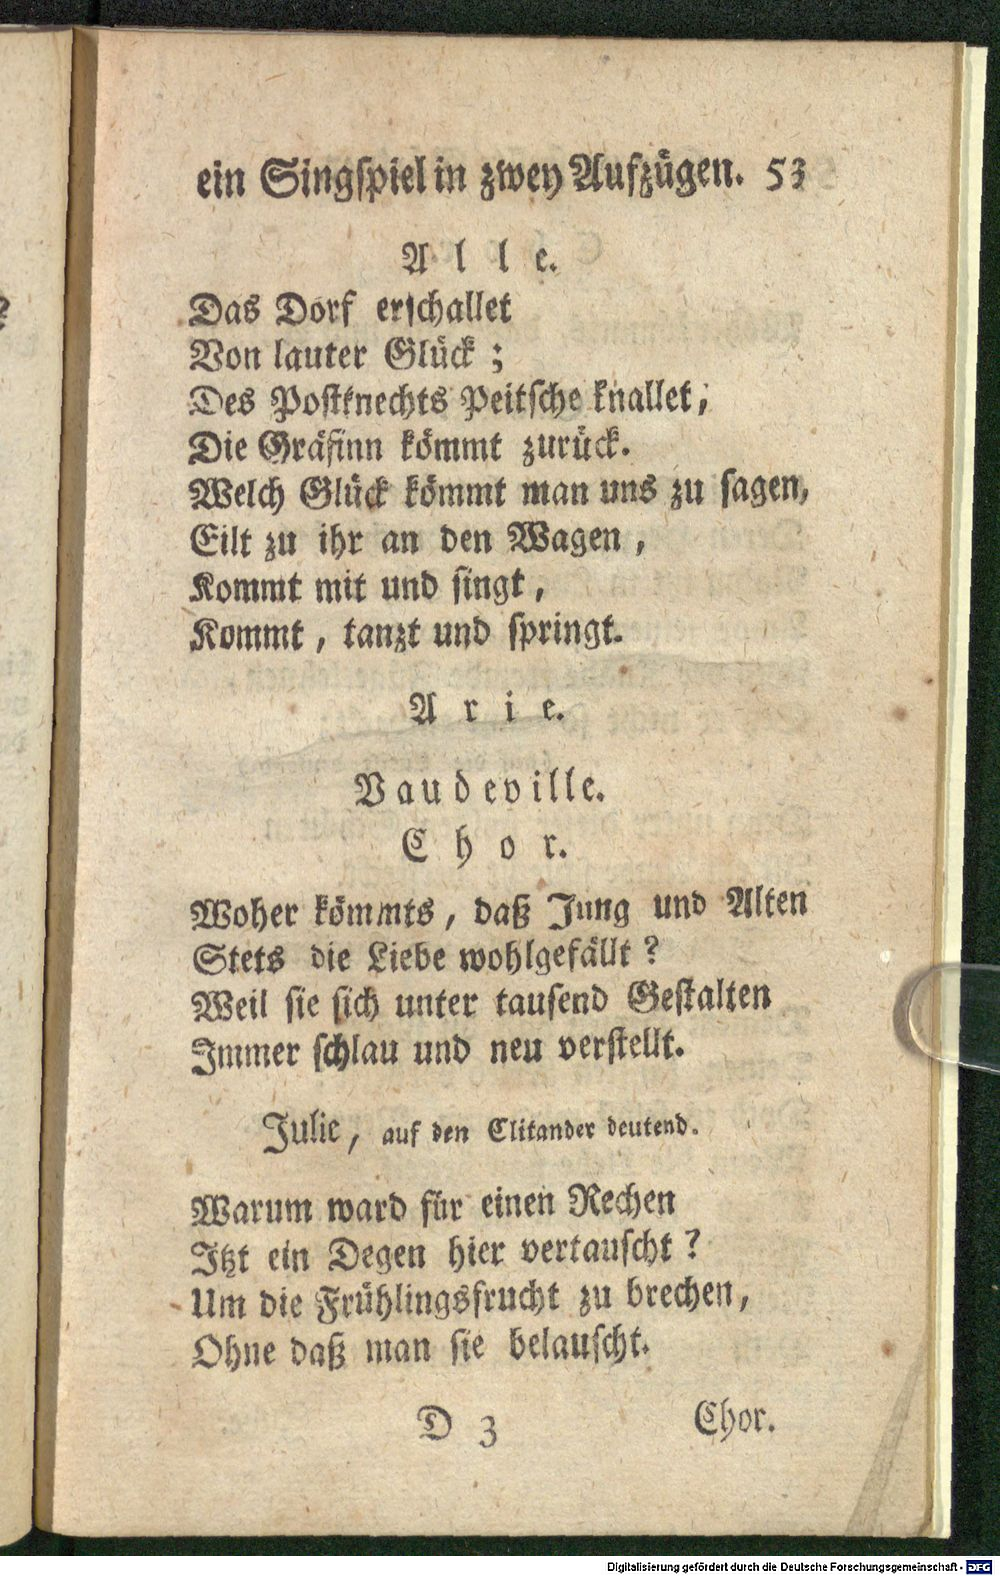 ein Singspiel in zwey Aufzügen. 53
Alle.
Das Dorf erschallet
Von lauter Glück;
Des Postknechts Peitsche knallet,
Die Gräfinn kömmt zurück.
Welch Glück kömmt man uns zu sagen,
Eilt zu ihr an den Wagen,
Kommt mit und singt,
Kommt, tanzt und springt.
Arie.
Vaudeville.
Chor.
Woher kömmts, daß Jung und Alten
Stets die Liebe wohlgefällt?
Weil sie sich unter tausend Gestalten
Immer schlau und neu verstellt.
Julie, auf den Clitander deutend.
Warum ward für einen Rechen
Itzt ein Degen hier vertauscht?
Um die Frühlingsfrucht zu brechen,
Ohne daß man sie belauscht.
D 3 Chor.
Digitalisierung gefördert durch die Deutsche Forschungsgemeinschaft - DFG